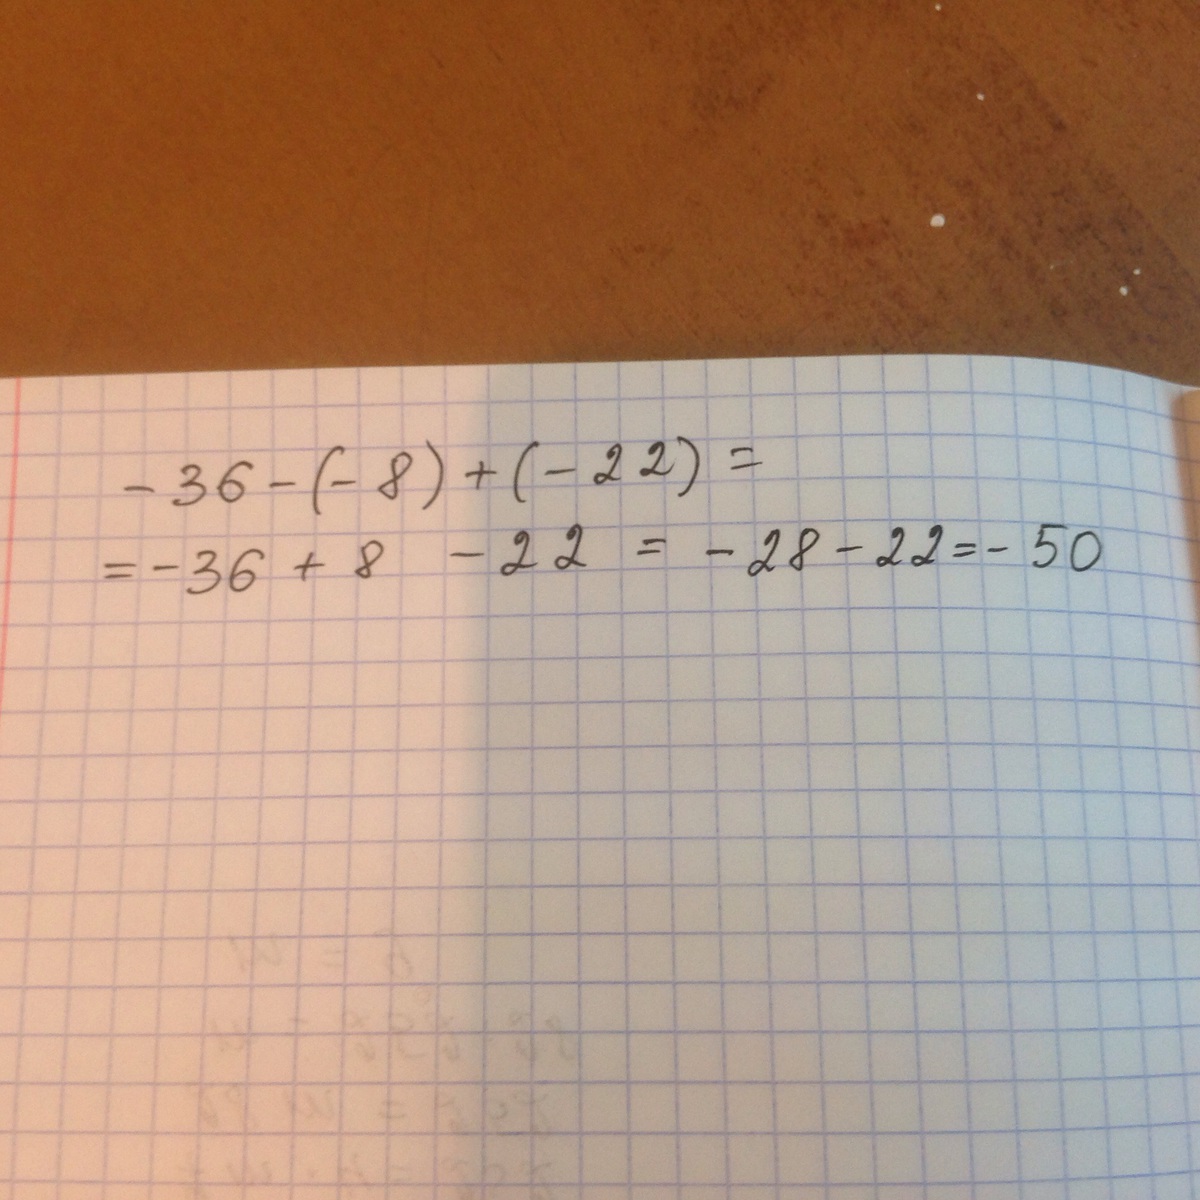 -36-(-8)+(-22)=
=-36+8 -22 = -28-22=-50